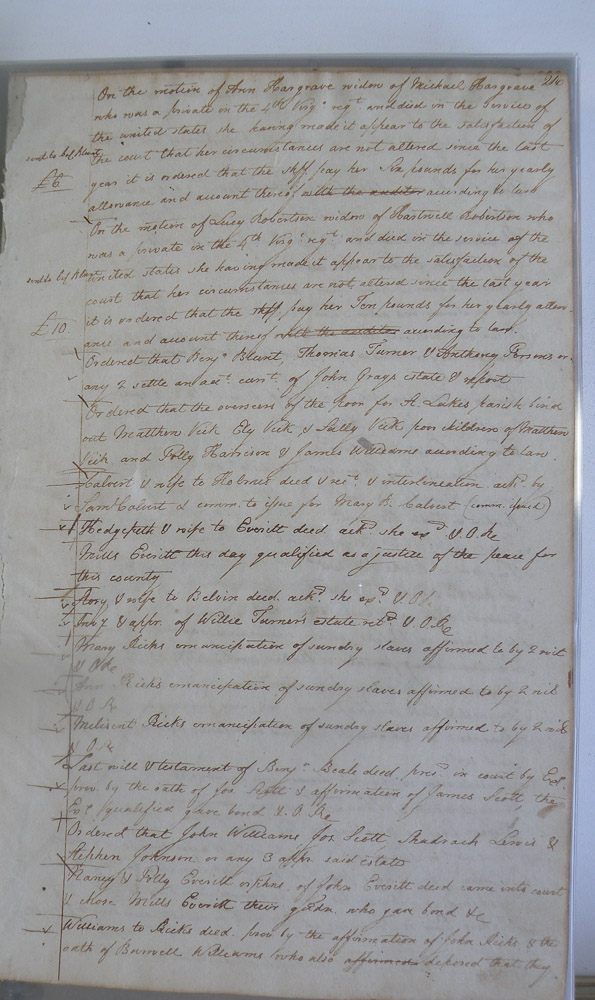 On the motion of Ann Hargrave widow of Michael Hargrave
who was a private in the 4th Virga regt. and died in the service of
the united states she having made it appear to the satisfaction of
the court that her circumstances are not altered since the last
year it is ordered that the shff pay her Six pounds for her yearly
£6
allowance and account thereof with the auditor according to law
On the motion of Lucy Robertson widow of Hartwell Robertson who
was a private in the 4th Virga regt. and died in the service of the
united states she having made it appear to the satisfaction of the
court that her circumstances are not altered since the last year
it is ordered that the shff pay her Ten pounds for her yearly allow-
£10
ance and account thereof with the auditor according to law.
Ordered that Benjn Blunt, Thomas Turner & Anthony Persons or
any 2 settle an act. curt. of John Grays estate & report
Ordered that the overseers of the poor for St. Lukes parish bind
out Matthew Vick Ely Vick & Sally Vick poor children of Matthew
Vick and Polly Harrison & James Williams according to law.
Calvert & wife to Holmes deed & rect. & interlineation ackd. by
Saml Calvert & comm. to issue for Mary B. Calvert (comm. issued)
Hedgepeth & wife to Everitt deed ackd. she exd. & O. Re
Mills Everitt this day qualified as a justice of the peace for
this county
& wife to Belvin deed. ackd. she exd. & O.
Invy & appr. of Willie Turners estate retd. & O. Re
Mary Ricks emancipation of sundry slaves affirmed to by 2 wit
& O Re
Ann Ricks emancipation of sundry slaves affirmed to by 2 wit
& O. Re
Milisent Ricks emancipation of sundry slaves affirmed to by 2 wit
& O. Re
Last will & testament of Benjn Beale deed. presd. in court by Exr.
prov. by the oath of Jos. Scott & affirmation of James Scott, the
Exr. qualified gave bond & O Re
Ordered that John Williams Jos. Scott, Shadrach Lewis &
Stephen Johnson or any 3 appr. said estate
Nancy & Polly Everitt orphns. of John Everitt deed came into court
& chose Mills Everitt their gdn. who gave bond &c
Williams to Ricks deed. prov. by the affirmation of John Ricks & the
oath of Burwell Williams who also affirmed deposed that they